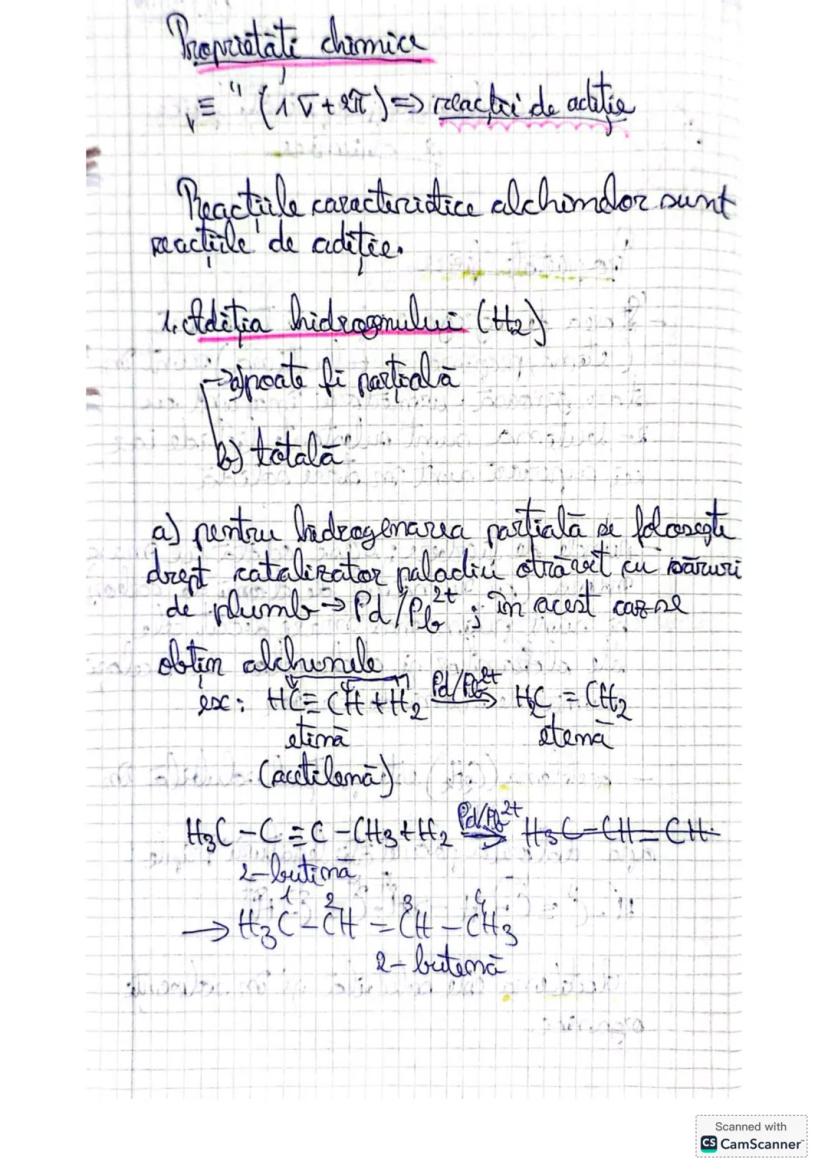 Proprietăți chimice
„≡" (1σ+2π) => reacții de adiție
Reacțiile caracteristice alchinelor sunt
reacțiile de adiție.
1. Adiția hidrogenului (H₂)
→ a) poate fi parțială
b) totală
a) pentru hidrogenarea parțială se folosește
drept catalizator paladiu otrăvit cu săruri
de plumb → Pd/Pb²⁺; în acest caz se
obțin alchenele
ex: HC≡CH + H₂ Pd/Pb²⁺→ H₂C = CH₂
etină etenă
(acetilenă)
H₃C – C ≡ C – CH₃ + H₂ Pd/Pb²⁺→ H₃C – CH = CH
2-butină
1 2 3 4
→ H₃C – CH = CH – CH₃
2-butenă
Scanned with
CS CamScanner